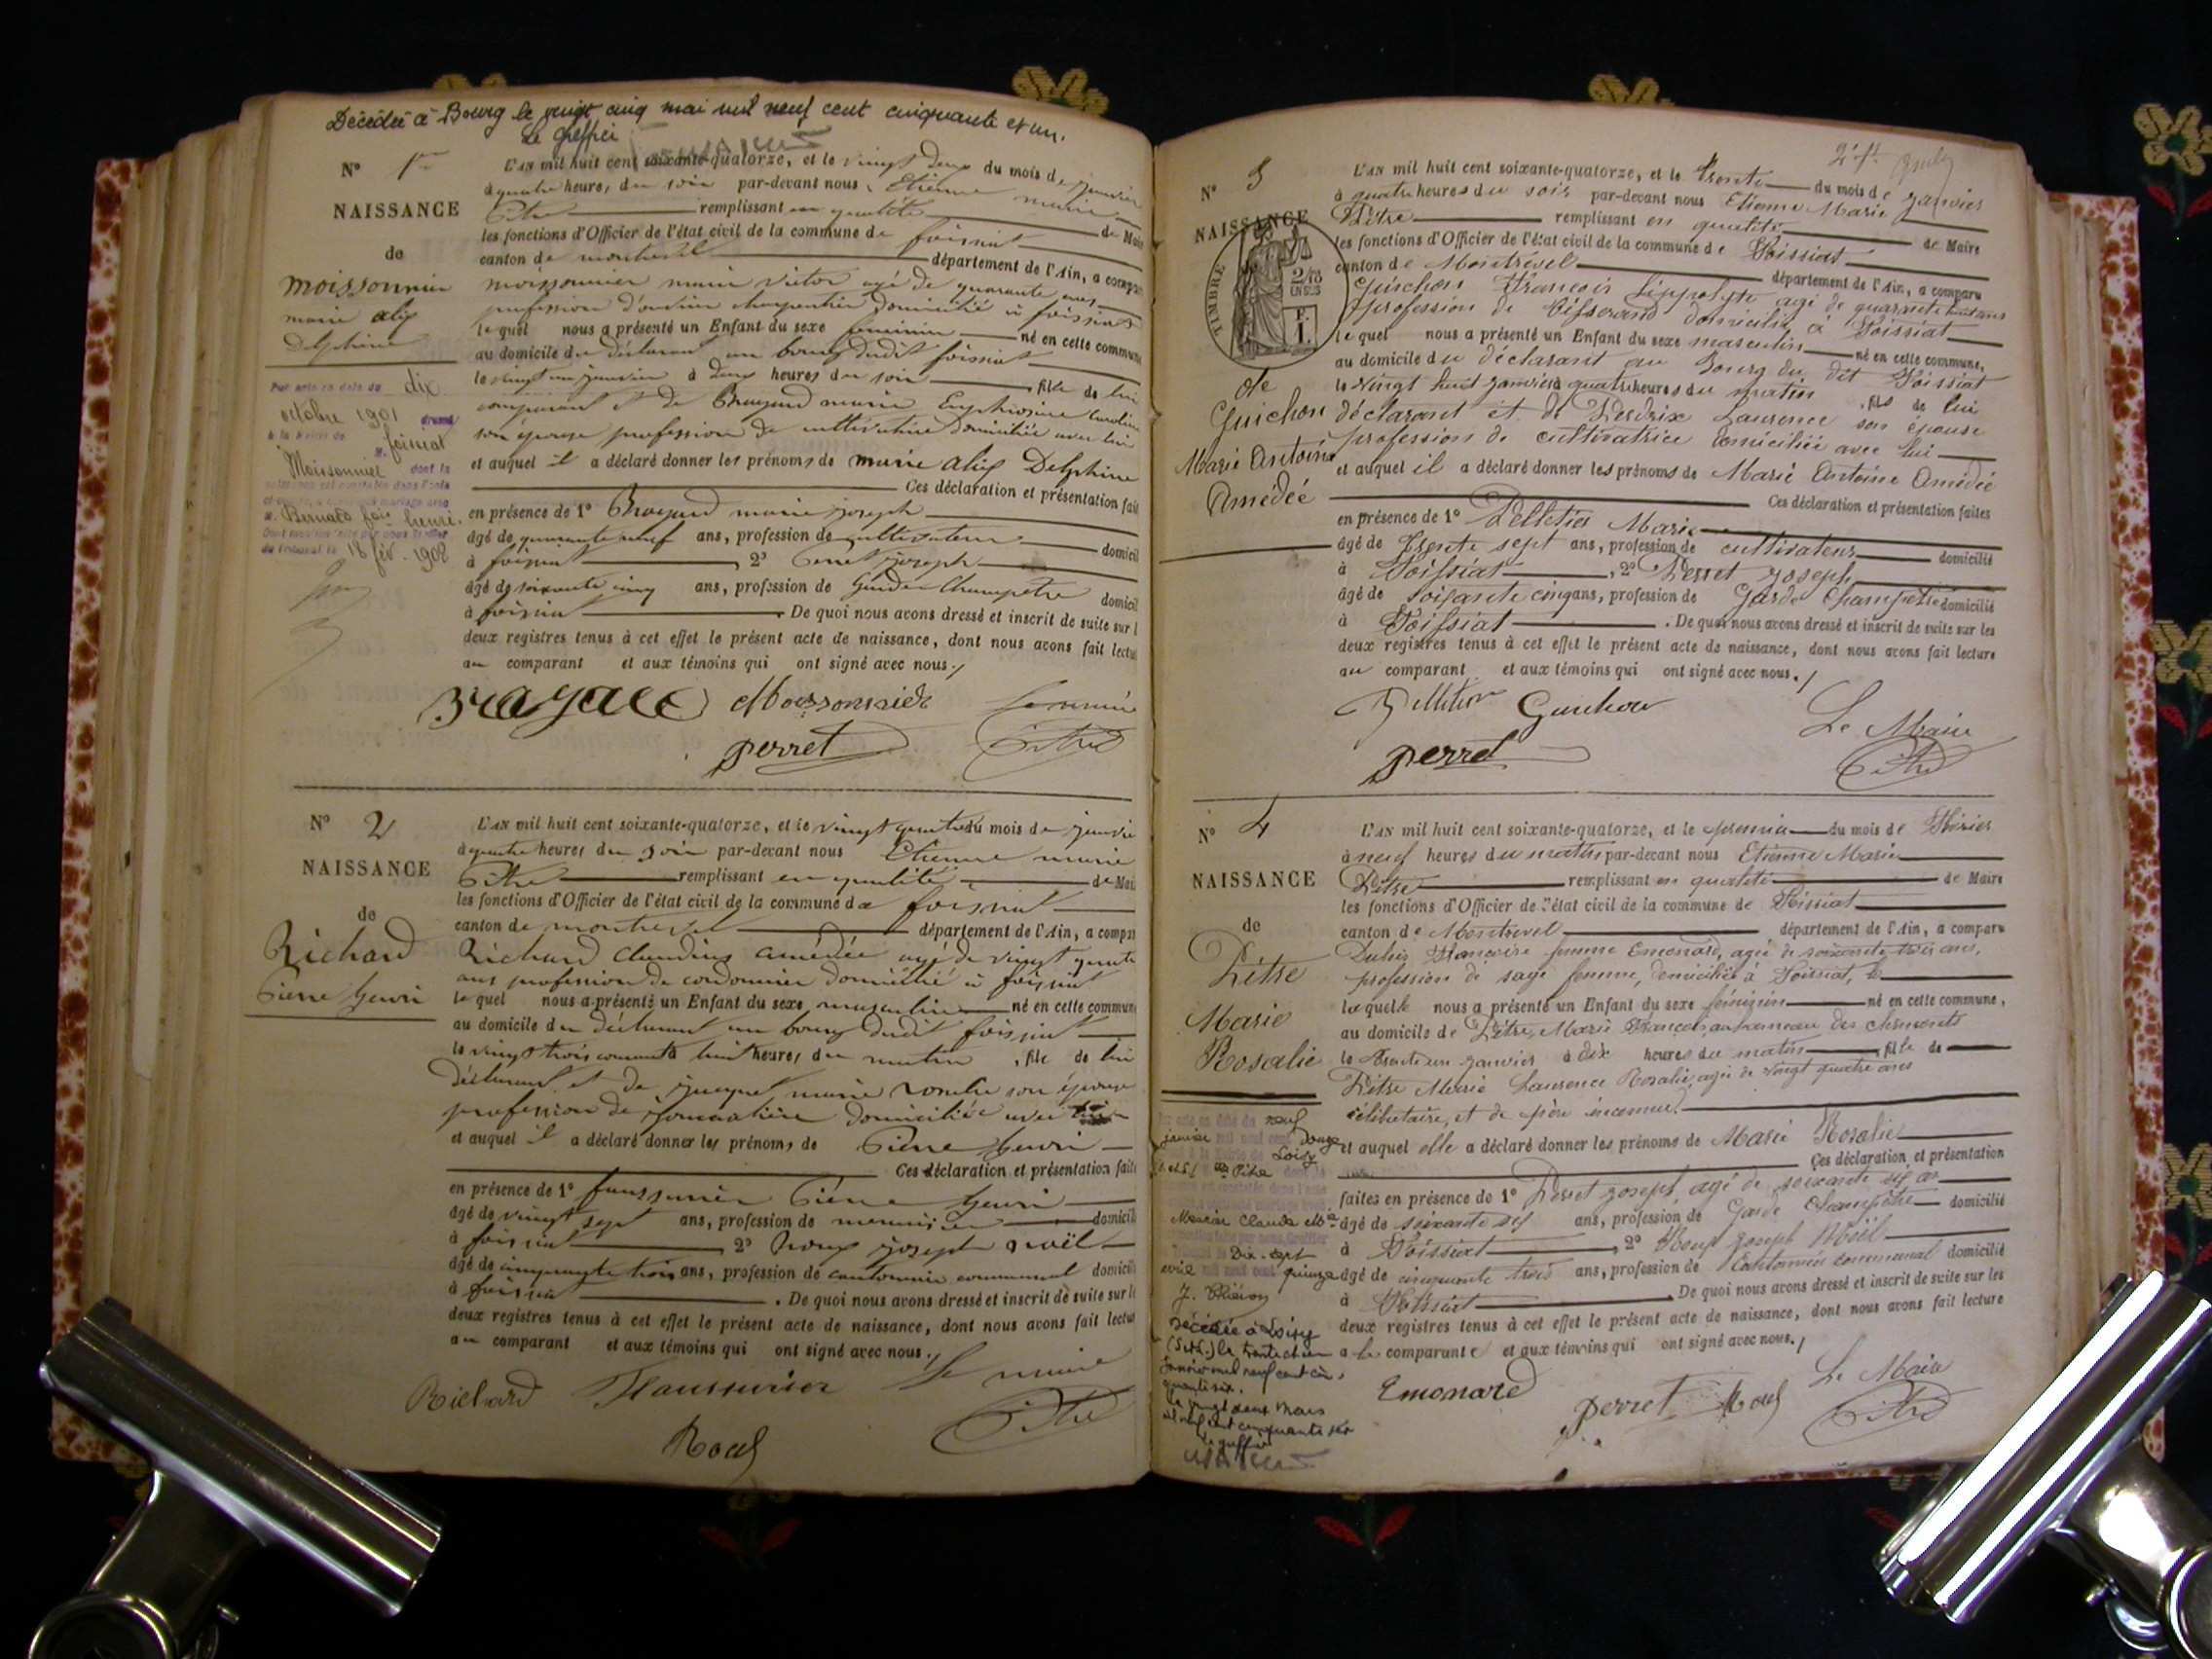 Décédée à Bourg le vingt cinq mai mil neuf cent cinquante et un.
Le greffier
N° 1er
NAISSANCE
de
moissonnier
marie alix
Delphine
Par acte en date du dix
octobre 1901
à la mairie de foissiat
Moissonnier dont la
M. Bernard henri.
du tribunal le 18 fév. 1908
L'AN mil huit cent soixante-quatorze, et le vingt deux du mois de janvier
à quatre heures du soir par-devant nous Etienne marie
Pitre remplissant en qualité de Mai
les fonctions d'Officier de l'état civil de la commune de foissiat
canton de montrevel département de l'Ain, a compa
moissonnier marie victor agé de quarante ans
profession d'ouvrier charpentier domicilié à foissiat
lequel nous a présenté un Enfant du sexe feminin né en cette commune
au domicile du déclarant au bourg dudit foissiat
le vingt un janvier à deux heures du soir, fille de lui
comparant et de Brayard marie Euphrosine
son épouse profession de cultivatrice domiciliée avec lui
et auquel il a déclaré donner les prénoms de marie alix Delphine
Ces déclaration et présentation fait
en présence de 1° Brayard marie joseph
âgé de quarante neuf ans, profession de cultivateur domicil
à foissiat, 2° Perret joseph
âgé de soixante cinq ans, profession de Garde Champetre domicil
à foissiat. De quoi nous avons dressé et inscrit de suite sur l
deux registres tenus à cet effet le présent acte de naissance, dont nous avons fait lectu
au comparant et aux témoins qui ont signé avec nous.
Brayard Moissonnier Le maire
perret Pitre
N° 2
NAISSANCE
de
Richard
Pierre henri
L'AN mil huit cent soixante-quatorze, et le vingt quatre du mois de janvie
à quatre heures du soir par-devant nous Etienne marie
Pitre remplissant en qualité de Mai
les fonctions d'Officier de l'état civil de la commune de foissiat
canton de montrevel département de l'Ain, a compa
Richard Claudius amédée agé de vingt quatre
ans profession de cordonnier domicilié à foissiat
lequel nous a présenté un Enfant du sexe masculin né en cette commune
au domicile du déclarant au bourg dudit foissiat
le vingt trois courant à huit heures du matin, fils de lui
déclarant et de marie son épouse
profession de journalière domiciliée avec lui
et auquel il a déclaré donner les prénoms de Pierre henri
Ces déclaration et présentation faite
en présence de 1° faussurier Pierre henri
âgé de vingt sept ans, profession de menuisier domicili
à foissiat, 2° joseph noël
âgé de cinquante trois ans, profession de cantonnier communal domicili
à foissiat. De quoi nous avons dressé et inscrit de suite sur le
deux registres tenus à cet effet le présent acte de naissance, dont nous avons fait lectu
au comparant et aux témoins qui ont signé avec nous.
Richard Le maire
Pitre
N° 3
NAISSANCE
TIMBRE
2/10
EN SUS
F.
1.
de
Guichon
Marie Antoine
Amédée
L'AN mil huit cent soixante-quatorze, et le trente du mois de janvier
à quatre heures du soir par-devant nous Etienne Marie
Pitre remplissant en qualité de Maire
les fonctions d'Officier de l'état civil de la commune de Foissiat
canton de Montrevel département de l'Ain, a comparu
Guichon François hippolyte agé de quarante huit ans
profession de Tisserand domicilié à Foissiat
lequel nous a présenté un Enfant du sexe masculin né en cette commune,
au domicile du déclarant au Bourg du dit Foissiat
le vingt huit janvier à quatre heures du matin, fils de lui
déclarant et de Perdrix Laurence son épouse
profession de cultivatrice domiciliée avec lui
et auquel il a déclaré donner les prénoms de Marie Antoine Amédée
Ces déclaration et présentation faites
en présence de 1° Pelletier Marie
âgé de trente sept ans, profession de cultivateur domicilié
à Foissiat, 2° Perret joseph
âgé de soixante cinq ans, profession de Garde Champetre domicilié
à Foissiat. De quoi nous avons dressé et inscrit de suite sur les
deux registres tenus à cet effet le présent acte de naissance, dont nous avons fait lecture
au comparant et aux témoins qui ont signé avec nous.
Pelletier Guichon Le Maire
perret Pitre
N° 4
NAISSANCE
de
Pitre
Marie
Rosalie
neuf
janvier mil neuf cent douze
Loisy
Pitre
Claude
Dix-sept
avril mil neuf cent quinze
Décédée à Loisy
(S et L) le trente et un
janvier mil neuf cent cin-
quante six.
Le vingt deux Mars
mil neuf cent cinquante six
Le greffier
L'AN mil huit cent soixante-quatorze, et le premier du mois de Février
à neuf heures du matin par-devant nous Etienne Marie
Pitre remplissant en qualité de Maire
les fonctions d'Officier de l'état civil de la commune de Foissiat
canton de Montrevel département de l'Ain, a comparu
Françoise femme Emonard, agée de soixante trois ans,
profession de sage femme, domiciliée à Foissiat,
laquelle nous a présenté un Enfant du sexe féminin né en cette commune,
au domicile de Pitre, Marie François au hameau des
le trente un janvier à dix heures du matin, fille de
Pitre Marie Laurence Rosalie, agée de vingt quatre ans
célibataire, et de père inconnu.
et auquel elle a déclaré donner les prénoms de Marie Rosalie
Ces déclaration et présentation
faites en présence de 1° Perret joseph, agé de soixante
âgé de soixante ans, profession de Garde Champêtre domicilié
à Foissiat, 2° joseph Noël
âgé de cinquante trois ans, profession de Cantonnier communal domicilié
à Foissiat. De quoi nous avons dressé et inscrit de suite sur les
deux registres tenus à cet effet le présent acte de naissance, dont nous avons fait lecture
a la comparante et aux témoins qui ont signé avec nous.
Emonard perret Le Maire
Pitre